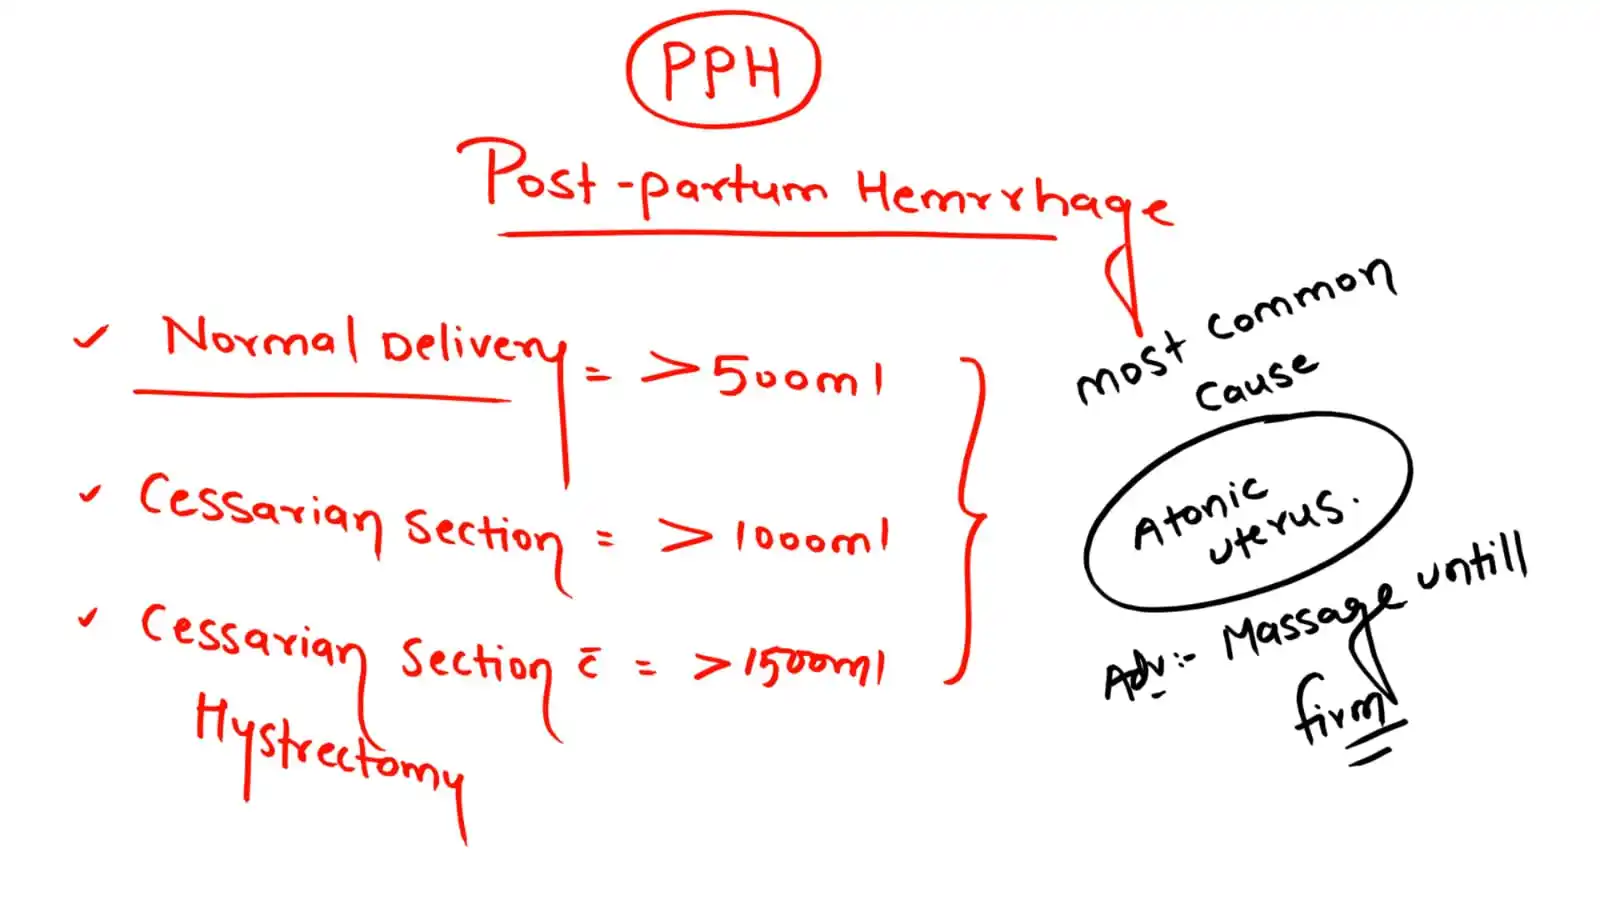 PPH
Post-partum Hemrrhage
✓ Normal Delivery = >500ml
✓ Cessarian Section = >1000ml
✓ Cessarian Section c̄ = >1500ml
Hystrectomy
most common
cause
Atonic
uterus.
Adv:- Massage untill
firm